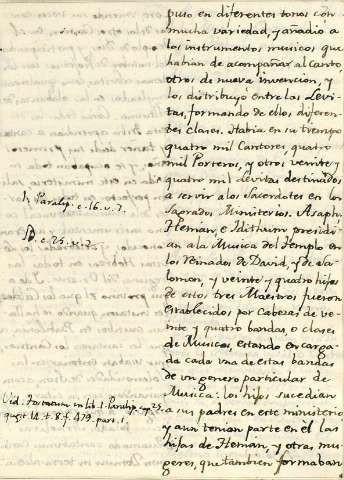 puso en diferentes tonos con
mucha variedad, y añadio a
los instrumentos musicos que
habian de acompañar al canto,
otros de nueva invencion, y
los distribuyó entre las Levi
tas, formando de ellos diferen-
tes clases. Habia en su tiempo
quatro mil Cantores, quatro
mil Porteros, y otros veinte y
quatro mil Levitas destinados
a servir a los Sacerdotes en los
Sagrados Ministerios. Asaph,
Heman, e Idithum, presidi-
an a la Musica del Templo en
los Reinados de David, y de Sa-
lomon, y veinte y quatro hijos
de estos tres Maestros fueron
establecidos por Cabezas de ve-
inte y quatro bandas, o clases
de Musicos, estando encarga-
da cada una de estas bandas
de un genero particular de
Musica: los hijos sucedian
a sus padres en este ministerio
y aun tenian parte en él las
hijas de Heman, y otras mu-
geres, que tambien formaban
1. Paralip. c. 16. v. 7.
c. 25. v. 7.
Vid. in lib. 1. Paralip. cap. 25.
quæst. 14. t. 8. f. 479. part. 1.